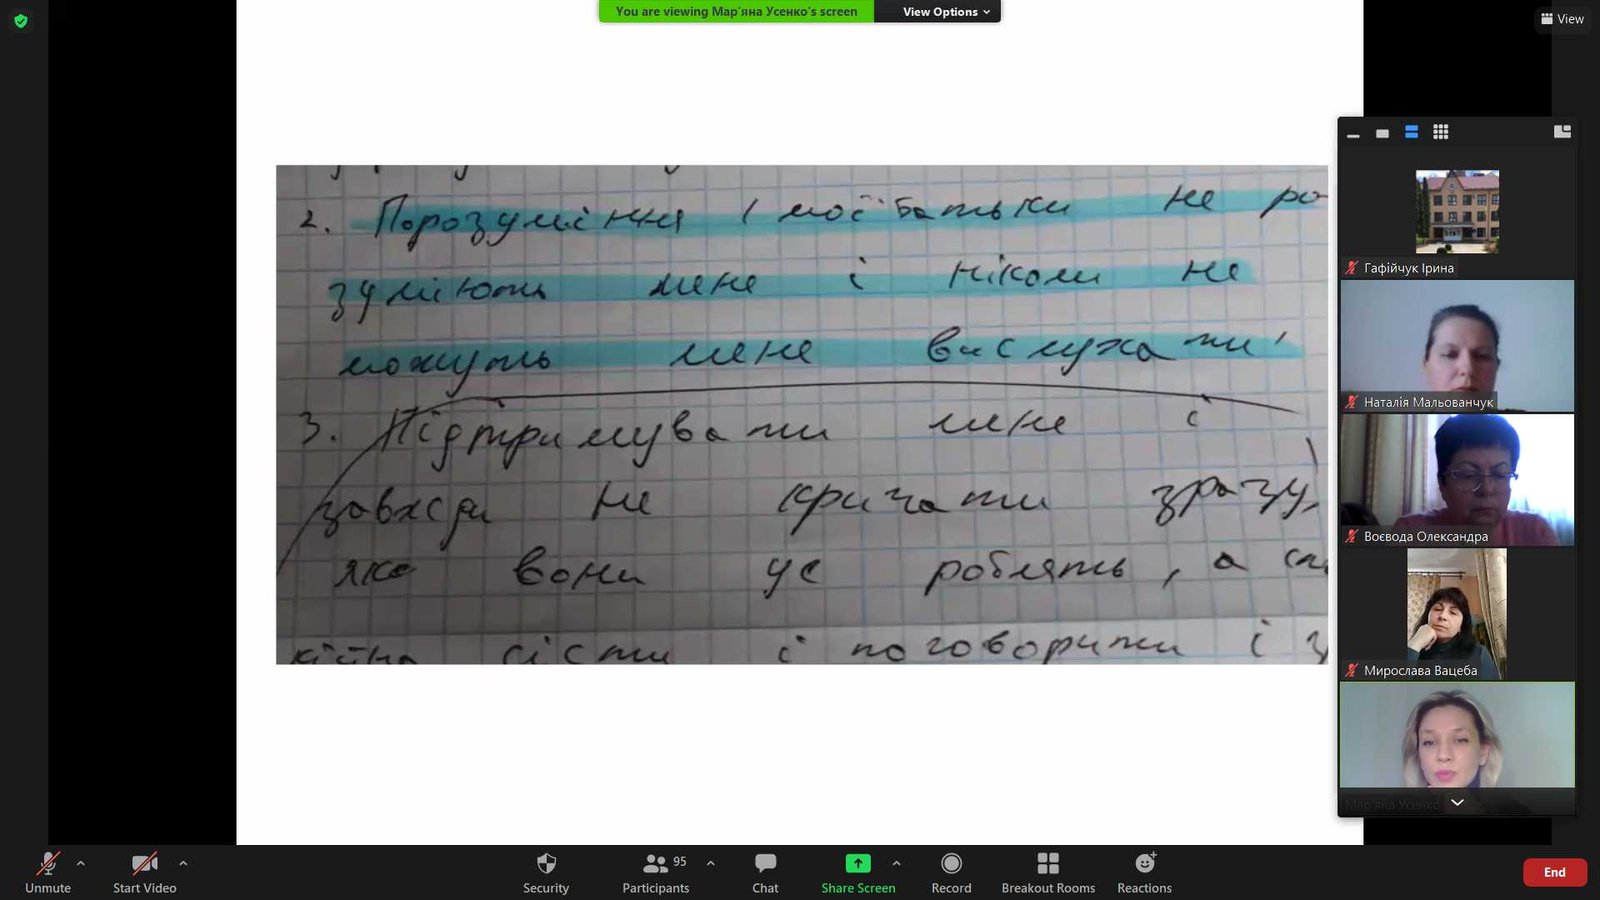 You are viewing Мар'яна Усенко's screen
View Options
View
2. Порозуміння ( мої батьки не ро
зуміють мене і ніколи не
можуть мене вислухати
3. Підтримувати мене і
завжди не кричати зразу,
яке вони це роблять, а сп
кійно сісти і поговорити і з
Гафійчук Ірина
Наталія Мальованчук
Воєвода Олександра
Мирослава Вацеба
Мар'яна Усенко
Unmute
Start Video
Security
95
Participants
Chat
Share Screen
Record
Breakout Rooms
Reactions
End